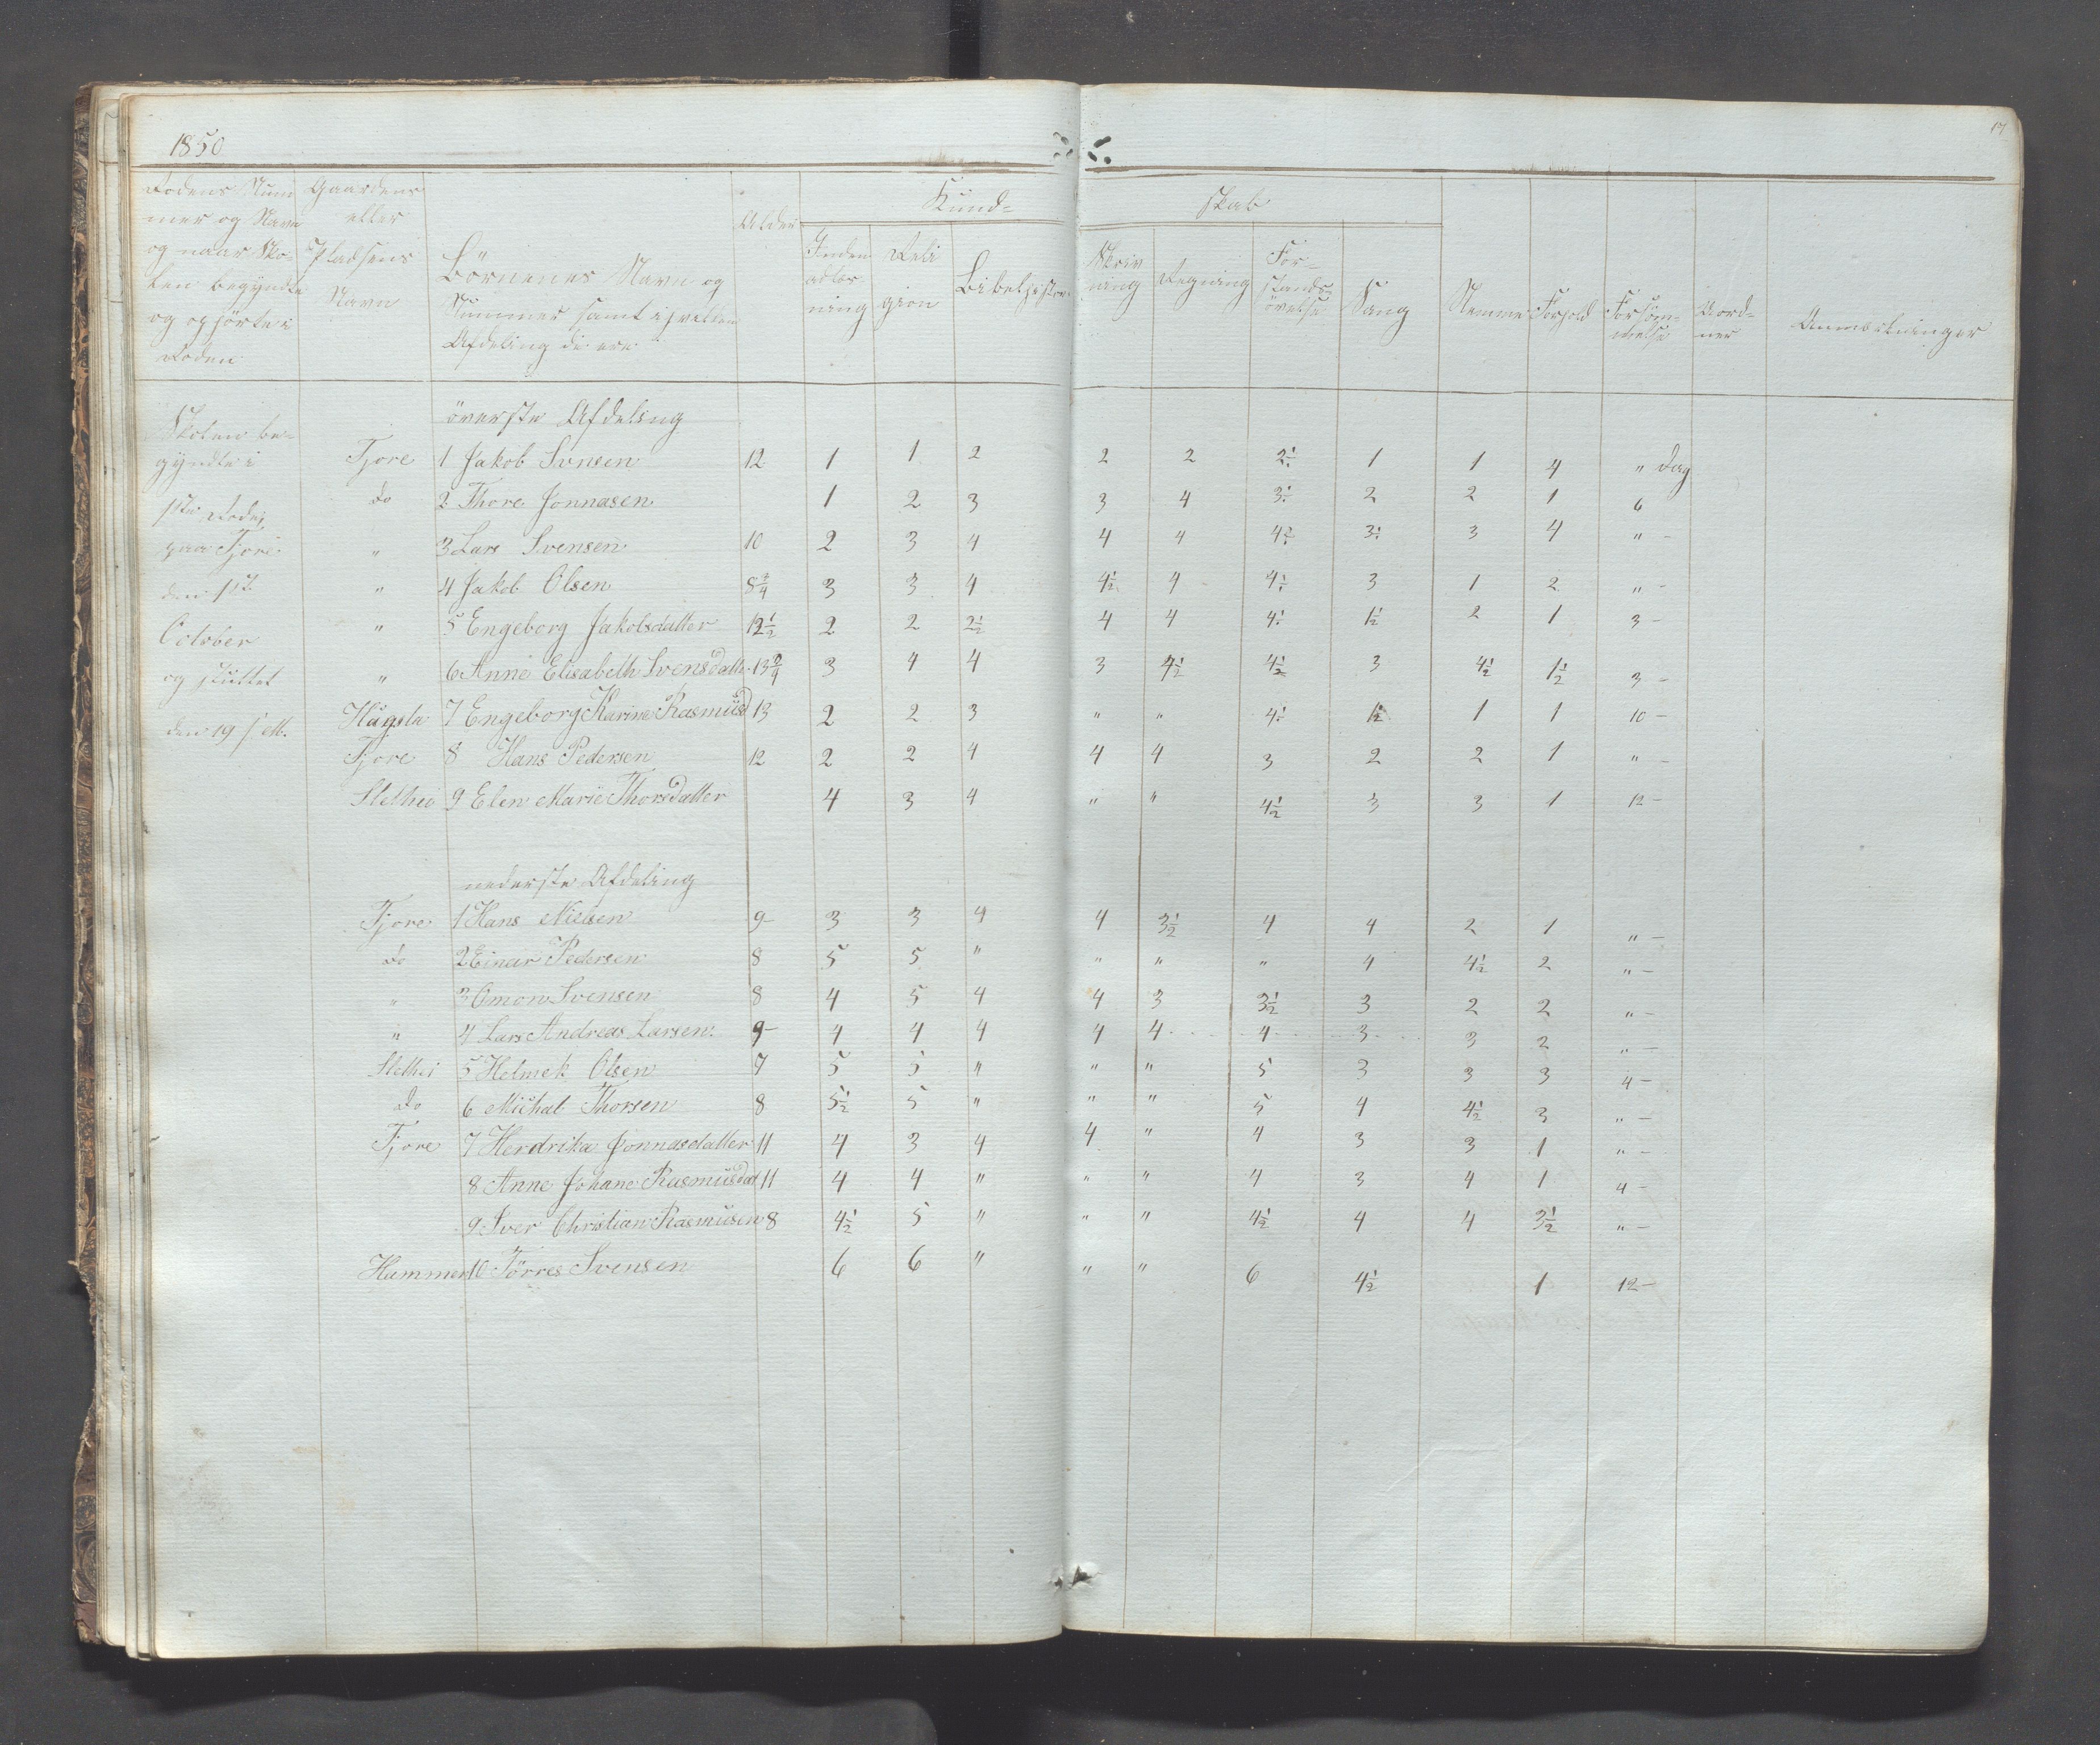 1850
17
Rodens Num
mer og Navn
og naar Sko-
len begyndte
og ophörte i
Roden
Gaardens
eller
Pladsens
Navn
Börnenes Navn og
Nummer samt i hvilken
Afdeling de ere
Alder
Kund-
skab
Inden
adlæs-
ning
Reli
gion
Bibelhistor.
Skriv
ning
Regning
For-
stands-
övelse
Sang
Nemme
Forhold
Forsöm-
melse
Anmærkninger
Skolen be-
gyndte i
1ste Rode
paa Fjore
den 1ste
October
og sluttet
den 19 s. M.
överste Afdeling
Fjore 1 Jakob Svnsen 12 1 1 2 2 2 2 1/2 1 1 4 " Dag
do 2 Thore Jonnasen 1 2 3 3 4 3 1/2 2 2 1 6
" 3 Lars Svensen 10 2 3 4 4 4 3 4 " -
" 4 Jakob Olsen 8 3/4 3 3 4 4 1/2 4 4 1/2 3 1 2 " -
" 5 Engeborg Jakobsdatter 12 1/2 2 2 2 1/2 4 4 4 1/2 1 1/2 2 1 3 -
" 6 Anne Elisabeth Svensdatt. 13 3/4 3 4 4 3 4 1/2 4 1/2 3 4 1/2 1 1/2 3 -
Hugsla 7 Engeborg Karine Rasmusd 13 2 2 3 " " 4 1/2 1 1/2 1 1 10 -
Fjore 8 Hans Pedersen 12 2 2 4 4 4 3 2 2 1 " -
Slethei 9 Elen Marie Thorsdatter 4 3 4 " " 4 1/2 3 3 1 12 -
nederste Afdeling
Fjore 1 Hans Nielsen 9 - 3 3 4 4 3 1/2 4 4 2 1 " -
do 2 Einar Pedersen 8 5 5 " " " " 4 4 1/2 2 " -
" 3 Omon Svensen 8 4 5 4 4 3 3 1/2 3 2 2 " -
" 4 Lars Andreas Larsen. 9 - 4 4 4 4 4 4 3 3 2 " -
Slethei 5 Helmek Olsen 7 5 5 " " " 5 3 3 3 4 -
Do 6 Michal Thorsen 8 5 1/2 5 " " " 5 4 4 1/2 3 " -
Fjore 7 Hendrika Jonnasdatter 11 4 3 4 4 " 4 3 3 1 " -
8 Anne Johane Rasmusdat 11 4 4 " " " 4 3 4 1 4 -
9 Iver Christian Rasmusen 8 4 1/2 5 " " " 4 1/2 4 4 3 1/2 " -
Hammer 10 Törres Svensen 6 6 " " " 6 4 1/2 1 12 -